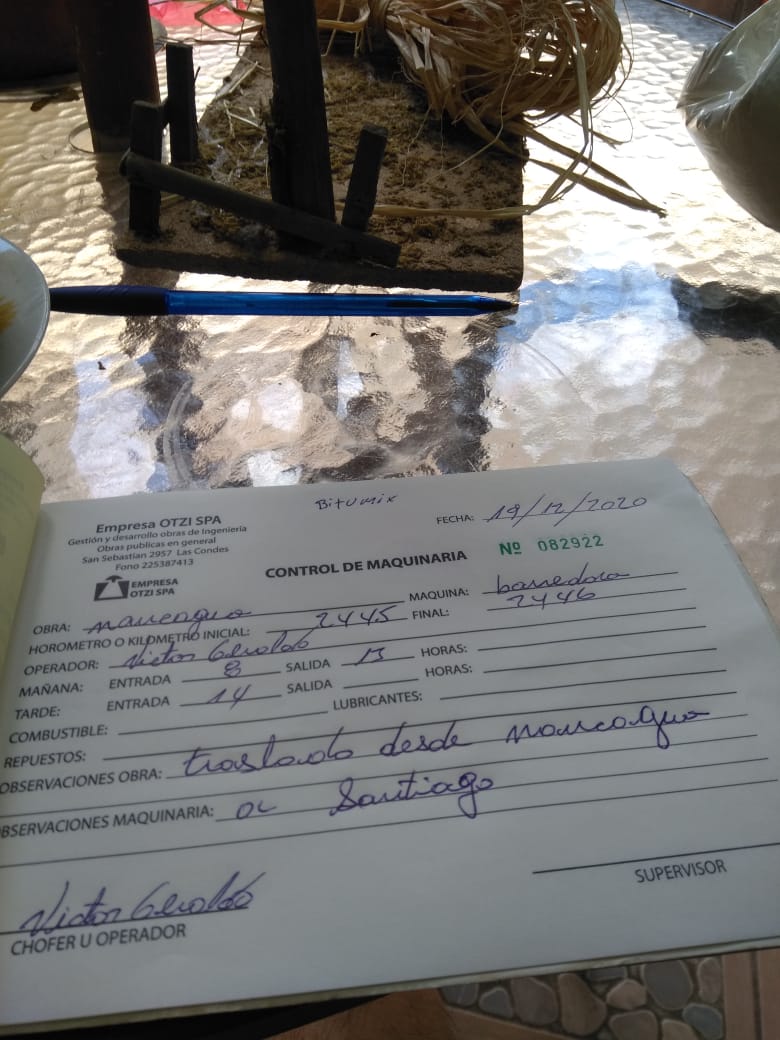 Bitumix
Empresa OTZI SPA
Gestión y desarrollo obras de Ingeniería
Obras publicas en general
San Sebastian 2957 Las Condes
Fono 225387413
EMPRESA
OTZI SPA
FECHA: 19/12/2020
CONTROL DE MAQUINARIA
Nº 082922
OBRA: nancagua MAQUINA: barredora
HOROMETRO O KILOMETRO INICIAL: 2445 FINAL: 2446
OPERADOR: Victor Geraldo
MAÑANA: ENTRADA 8 SALIDA 13 HORAS:
TARDE: ENTRADA 14 SALIDA HORAS:
COMBUSTIBLE: LUBRICANTES:
REPUESTOS:
OBSERVACIONES OBRA: traslado desde nancagua
OBSERVACIONES MAQUINARIA: a Santiago
Victor Geraldo
CHOFER U OPERADOR
SUPERVISOR